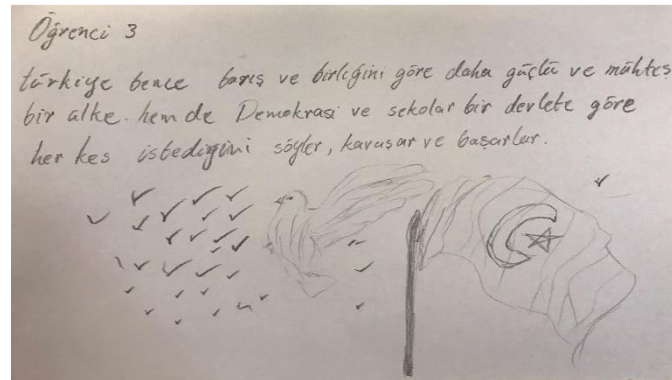 Öğrenci 3
türkiye bence barış ve birliğini göre daha güçlü ve mühtes
bir ülke. hem de Demokrasi ve sekolar bir devlete göre
her kes istediğini söyler, kavuşar ve başarlar.